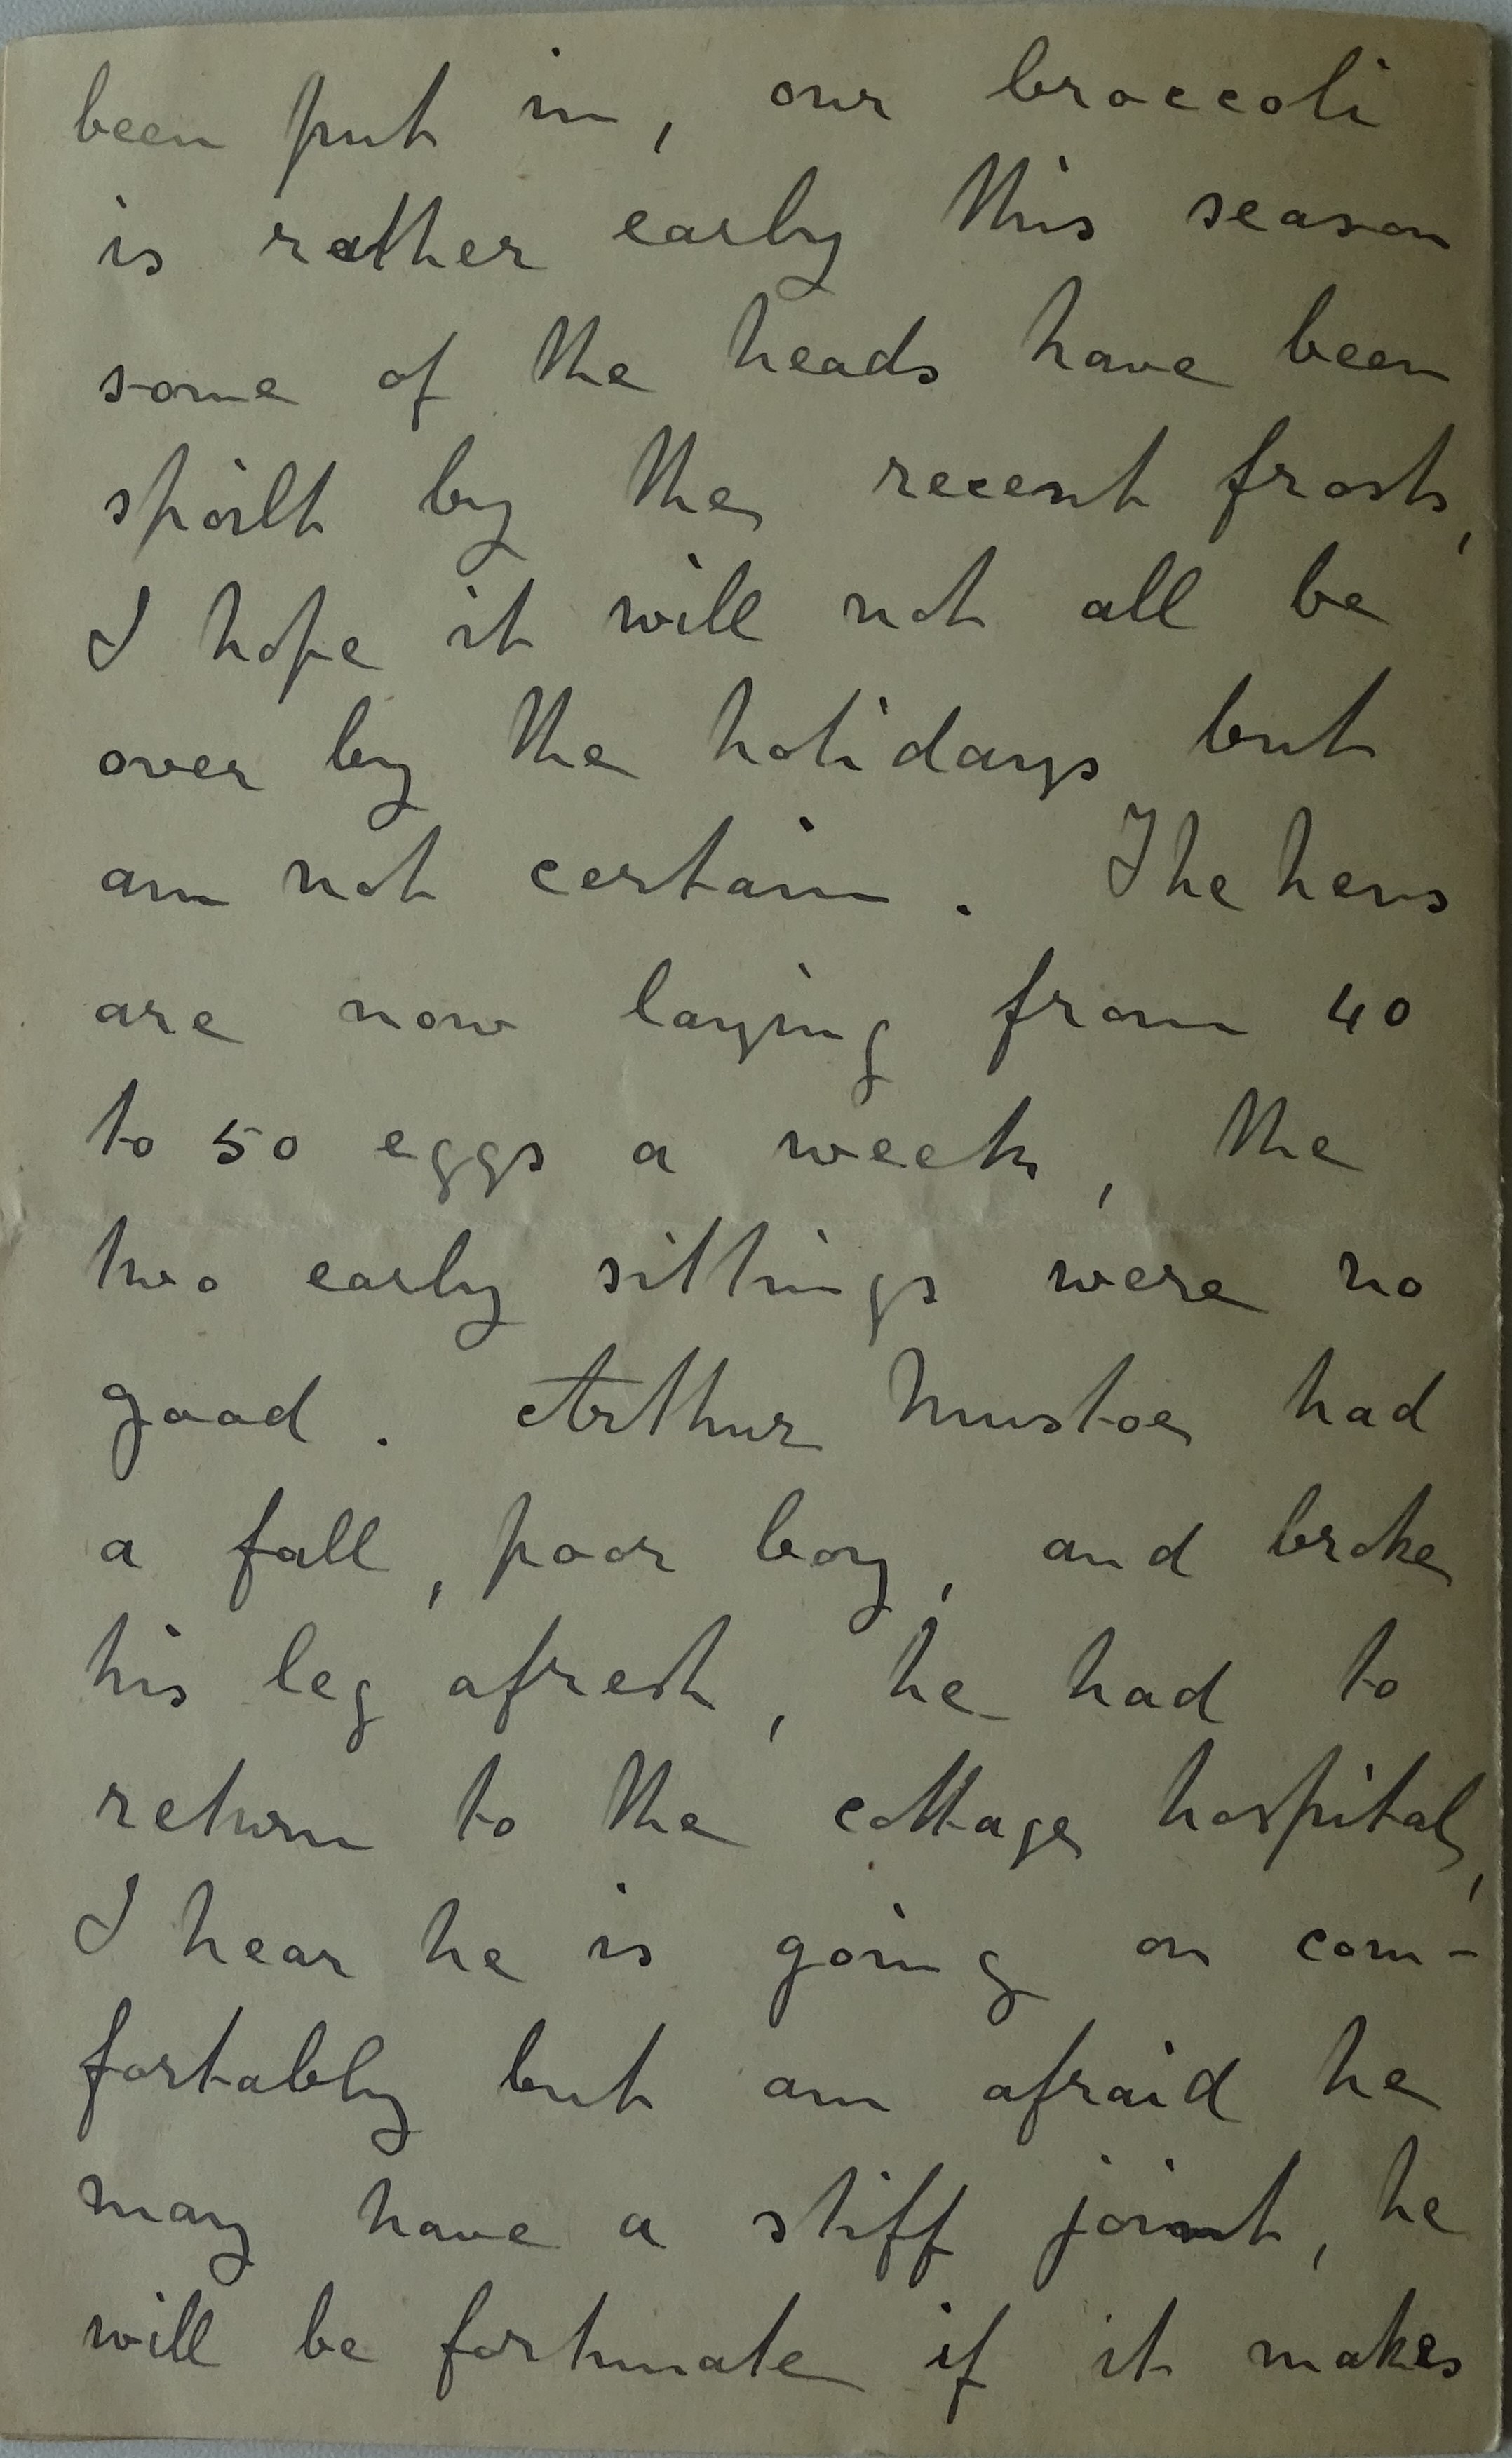 been put in, our broccoli
is rather early this season
some of the heads have been
spoilt by the recent frosts,
I hope it will not all be
over by the holidays but
am not certain. The hens
are now laying from 40
to 50 eggs a week, the
two early sittings were no
good. Arthur Mustoe had
a fall, poor boy, and broke
his leg afresh, he had to
return to the cottage hospital,
I hear he is going on com-
fortably but am afraid he
may have a stiff joint, he
will be fortunate if it makes